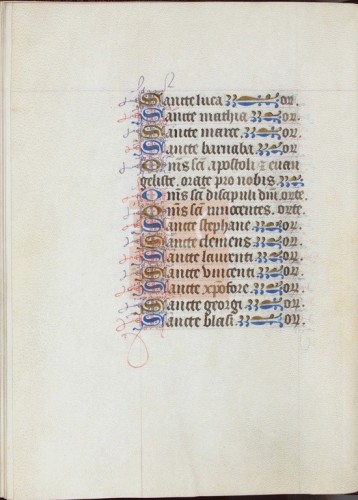 Sancte luca or.
Sancte mathia or.
Sancte marce or.
Sancte barnaba or.
Om̄s sc̄i apostoli ⁊ euan
geliste. orate pro nobis.
Om̄s sc̄i discipuli dn̄i. orte.
Om̄s sc̄i innocentes. orte.
Sancte stephane. or.
Sancte clemens. or.
Sancte laurenti or.
Sancte vincenti or.
Sancte xp̄ofore. or.
Sancte georgi or.
Sancte blasi. or.